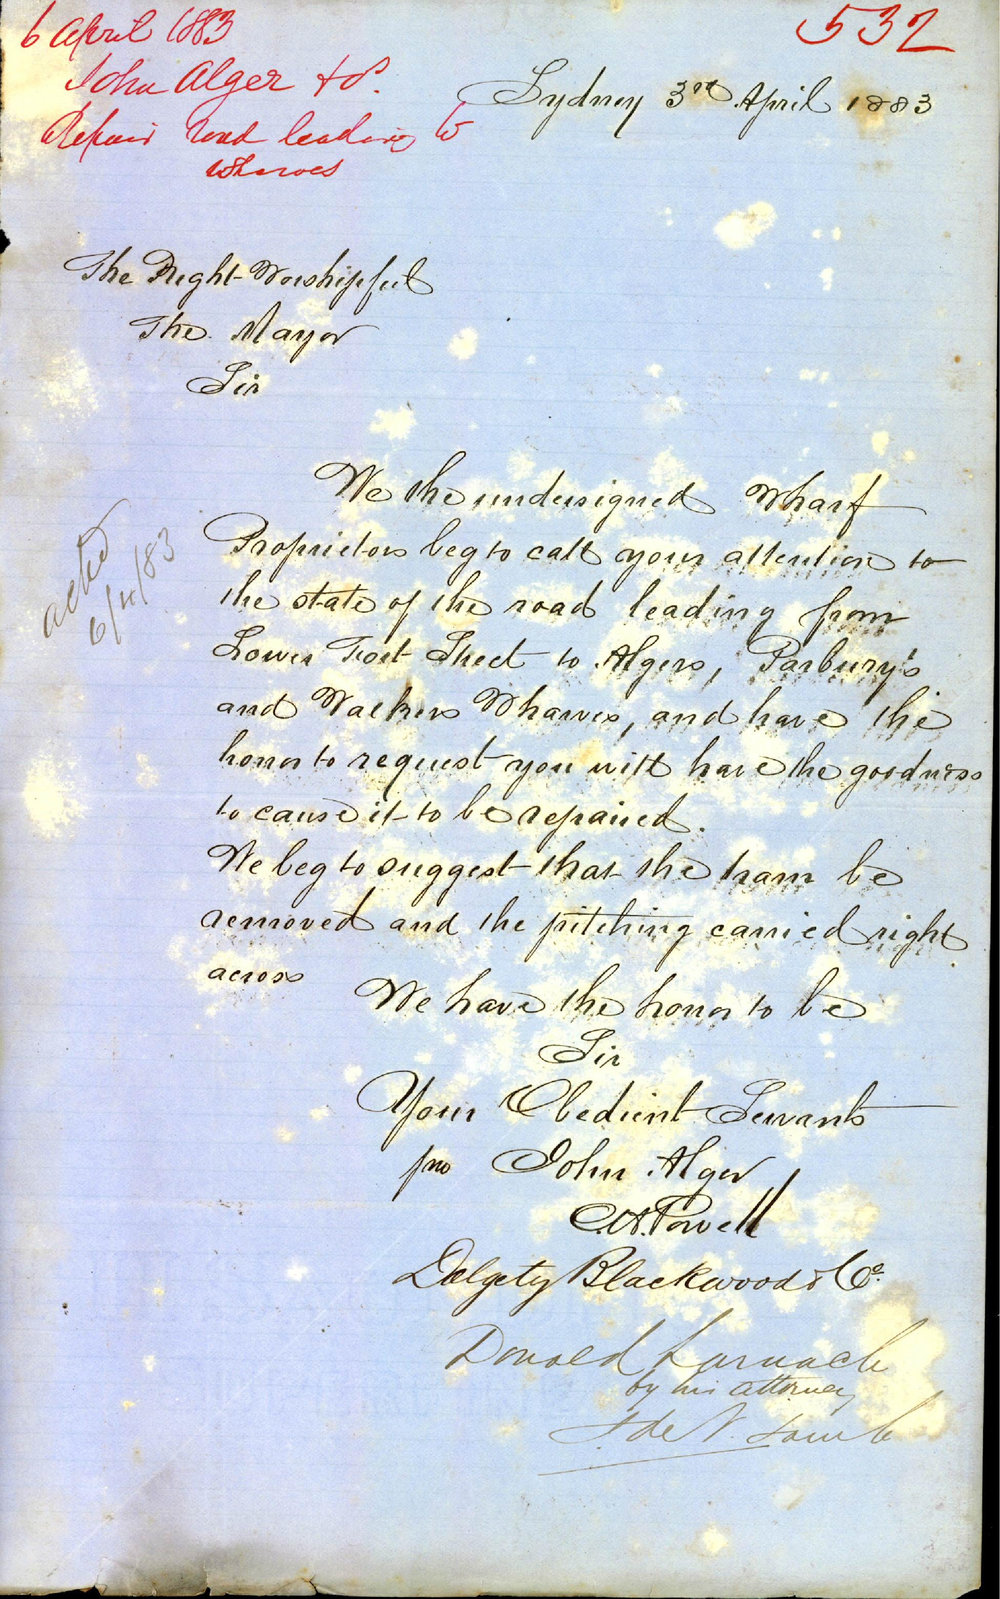 6 April 1883
532
John Alger + Os.
Repair road leading to
wharves
Sydney 3rd April 1883
The Right Worshipful
The Mayor
Sir
We the undersigned Wharf
Proprietors beg to call your attention to
the state of the road leading from
Lower Fort Street to Algers, Parbury's
and Walkers Wharves, and have the
honor to request you will have the goodness
to cause it to be repaired.
We beg to suggest that the tram be
removed and the pitching carried right
across
acted
6/4/83
We have the honor to be
Sir
Your Obedient Servants
pro John Alger
C.A. Powell
Dalgety Blackwood & Co.
Donald Larnach
by his attorney
de V. Lamb